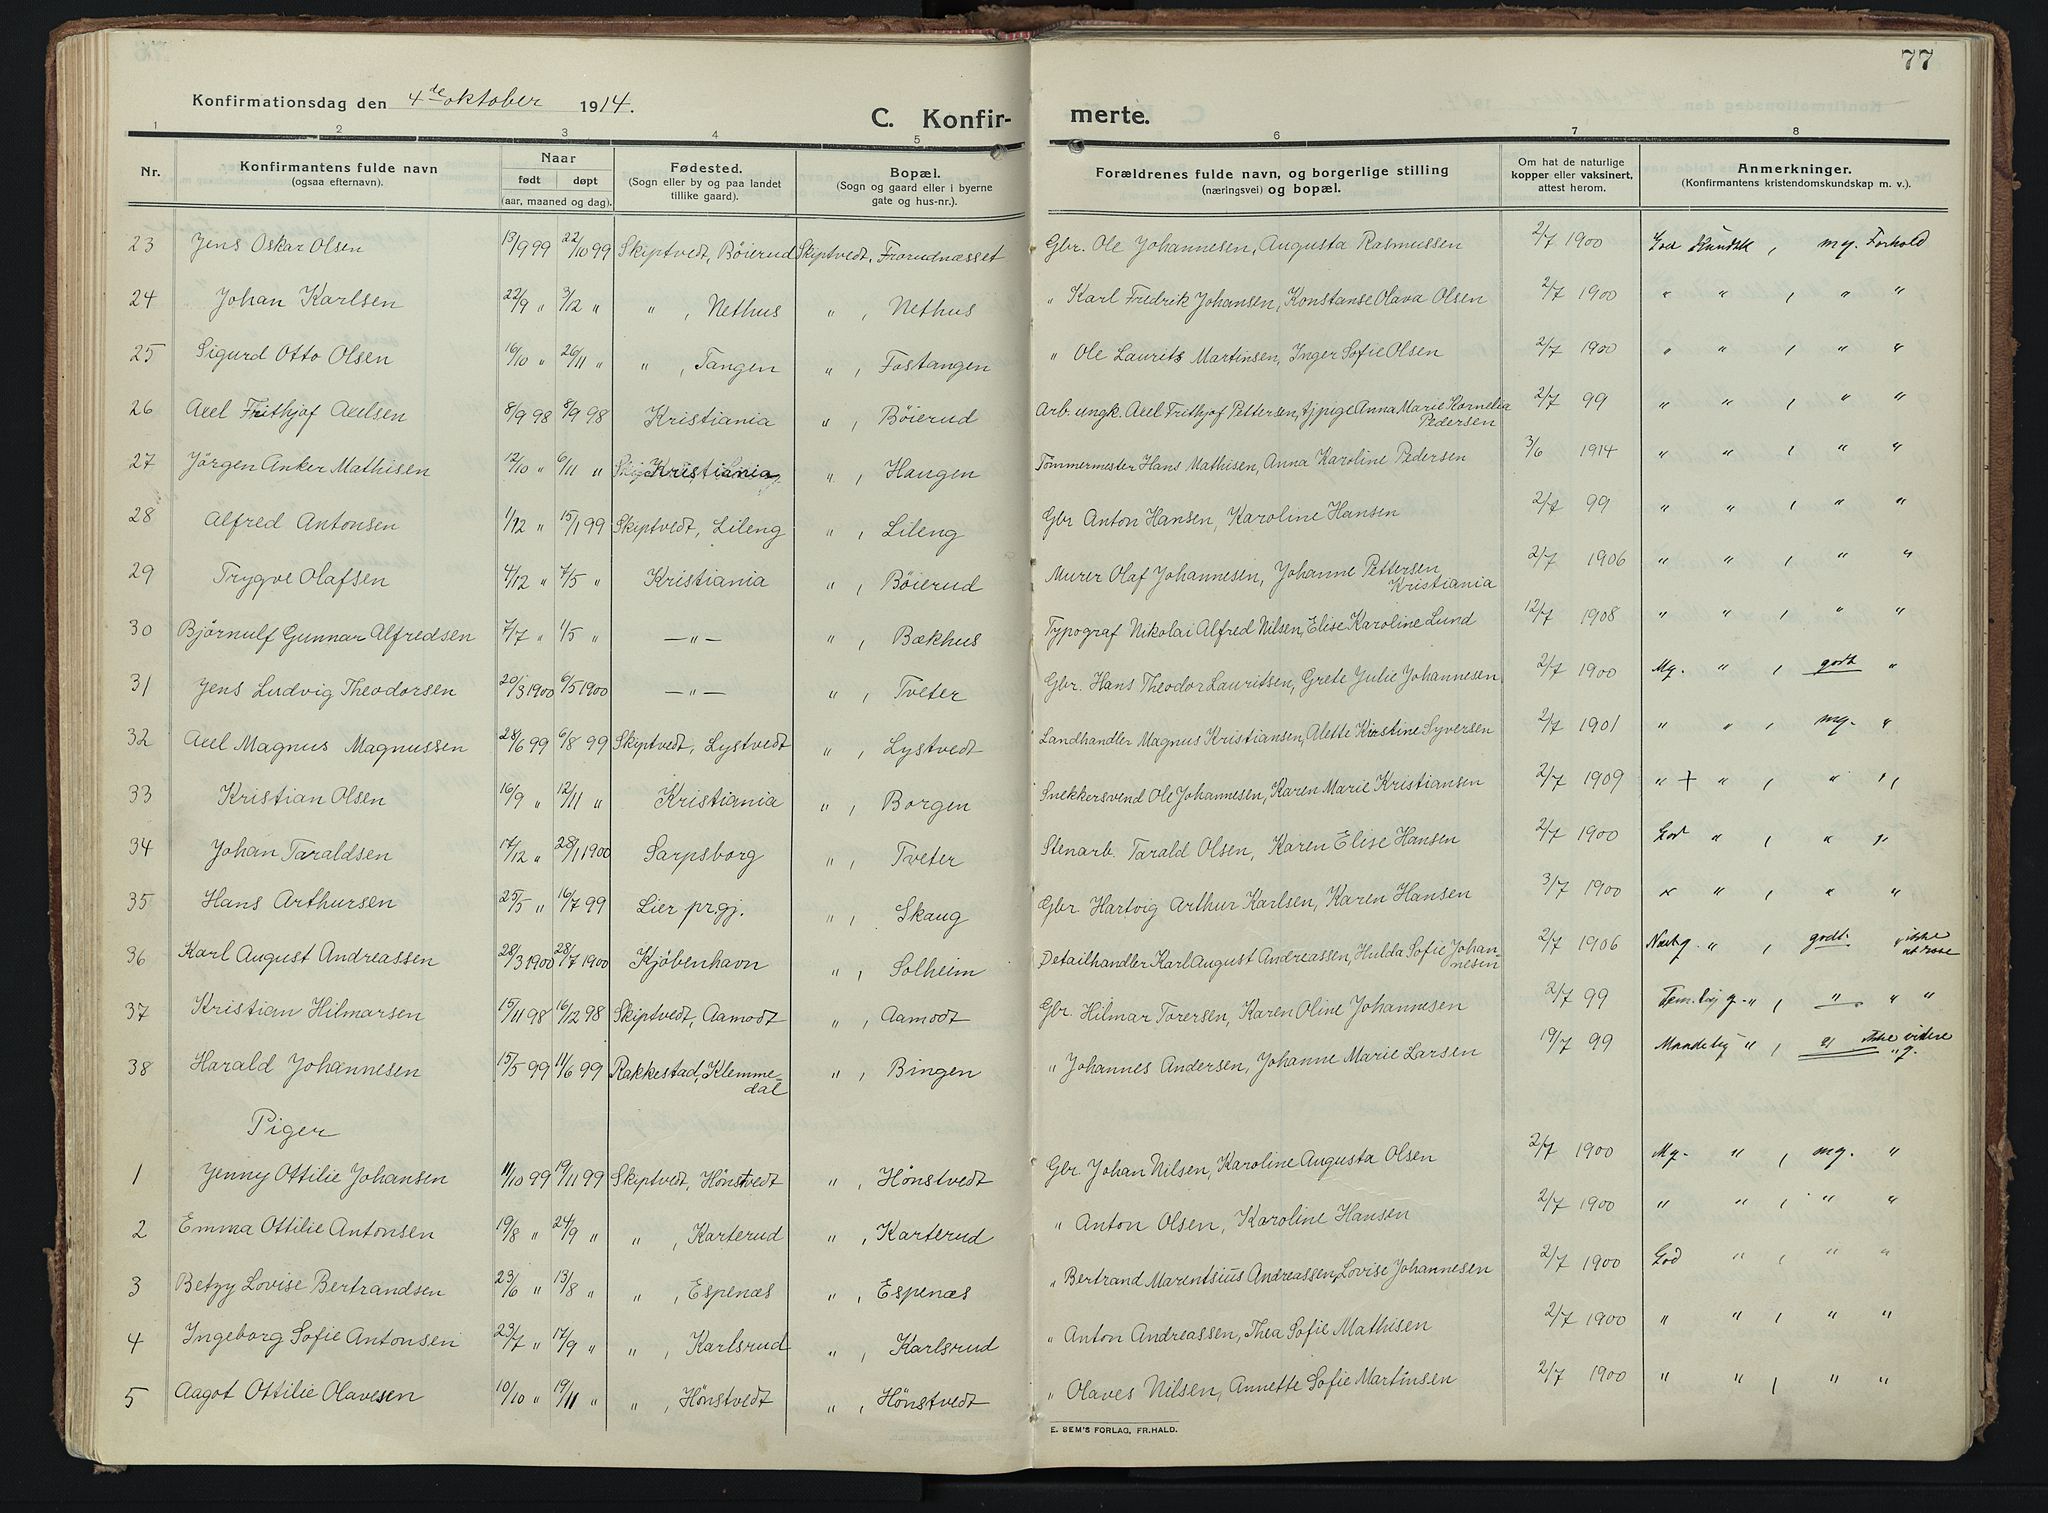 77
Konfirmationsdag den 4de oktober 1914.
C. Konfir- merte.
1 2 3 4 5 6 7 8
Nr. Konfirmantens fulde navn (ogsaa efternavn). Naar født døpt (aar, maaned og dag). Fødested. (Sogn eller by og paa landet tillike gaard). Bopæl. (Sogn og gaard eller i byerne gate og hus-nr.). Forældrenes fulde navn, og borgerlige stilling (næringsvei) og bopæl. Om hat de naturlige kopper eller vaksinert, attest herom. Anmerkninger. (Konfirmantens kristendomskundskap m. v.).
23 Jens Oskar Olsen 13/9 99 22/10 99 Skiptvedt, Böierud Skiptvedt, Frorudnæsset Gbr. Ole Johannesen, Augusta Rasmussen 2/7 1900 God Kundsk, mg. Forhold
24 Johan Karlsen 22/9 " 3/12 " " , Nethus " , Nethus " Karl Fredrik Johansen, Konstanse Olava Olsen 2/7 1900 " " , " "
25 Sigurd Otto Olsen 16/10 " 26/11 " " , Tangen " , Fostangen " Ole Laurits Martinsen, Inger Sofie Olsen 2/7 1900 " " , " "
26 Axel Frithjof Axelsen 8/9 98 8/9 98 Kristiania " , Böierud Arb. ungk. Axel Frithjof Pettersen, tjpige Anna Marie Kornelia Pedersen 2/7 99 " " , " "
27 Jörgen Anker Mathisen 12/10 " 6/11 " Kristiania " , Haugen Tömmermester Hans Mathisen, Anna Karoline Pedersen 3/6 1914 " " , " "
28 Alfred Antonsen 1/12 " 15/1 99 Skiptvedt, Lileng " , Lileng Gbr Anton Hansen, Karoline Hansen 2/7 99 " " , " "
29 Trygve Olafsen 4/12 " 7/5 " Kristiania " , Böierud Murer Olaf Johannesen, Johanne Pettersen Kristiania 2/7 1906 " " , " "
30 Björnulf Gunnar Alfredsen 7/7 " 1/5 " —"— " , Bækhus Typograf Nikolai Alfred Nilsen, Elise Karoline Lund 12/7 1908 " " , " "
31 Jens Ludvig Theodorsen 20/3 1900 6/5 1900 —"— " , Tveter Gbr. Hans Theodor Lauritsen, Grete Julie Johannesen 2/7 1900 Mg. " , godt "
32 Axel Magnus Magnussen 28/6 99 6/8 99 Skiptvedt, Lystvedt " , Lystvedt Landhandler Magnus Kristiansen, Alette Kirstine Syversen 2/7 1901 " " , mg. "
33 Kristian Olsen 16/9 " 12/11 " Kristiania " , Borgen Snekkersvend Ole Johannesen, Karen Marie Kristiansen 2/7 1909 " + " , " "
34 Johan Taraldsen 17/12 " 28/1 1900 Sarpsborg " , Tveter Stenarb. Tarald Olsen, Karen Elise Hansen 2/7 1900 God " , " "
35 Hans Arthursen 25/5 " 16/7 99 Lier prgj. " , Skaug Gbr. Hartvig Arthur Karlsen, Karen Hansen 3/7 1900 " " , " "
36 Karl August Andreassen 28/3 1900 28/7 1900 Kjøbenhavn " , Solheim Detailhandler Karl August Andreassen, Hulda Sofie Johannesen 2/7 1906 " , godt. ikke at rose
37 Kristian Hilmarsen 15/11 98 16/12 98 Skiptvedt, Aamodt " , Aamodt Gbr. Hilmar Torersen, Karen Oline Johannesen 2/7 99 " , " " "
38 Harald Johannesen 15/5 99 11/6 99 Rakkestad, Klemmedal " , Bingen " Johannes Andersen, Johanne Marie Larsen 19/7 99 " , ikke videre g.
Piger
1 Jenny Ottilie Johansen 11/10 99 19/11 99 Skiptvedt, Hönstvedt " , Hönstvedt Gbr Johan Nilsen, Karoline Augusta Olsen 2/7 1900 Mg. " , mg. "
2 Emma Ottilie Antonsen 19/8 " 24/9 " " , Karterud " , Karterud " Anton Olsen, Karoline Hansen 2/7 1900 " " , " "
3 Betzy Lovise Bertrandsen 23/6 " 13/8 " " , Espenæs " , Espenæs " Bertrand Marentsius Andreassen, Lovise Johannesen 2/7 1900 God " , " "
4 Ingeborg Sofie Antonsen 23/7 " 17/9 " " , Karlsrud " , Karlsrud " Anton Andreassen, Thea Sofie Mathisen 2/7 1900 " " , " "
5 Aagot Ottilie Olavesen 10/10 " 19/11 " " , Hönstvedt " , Hönstvedt " Olaves Nilsen, Annette Sofie Martinsen 2/7 1900 " " , " "
E. SEM'S FORLAG, FR.HALD.